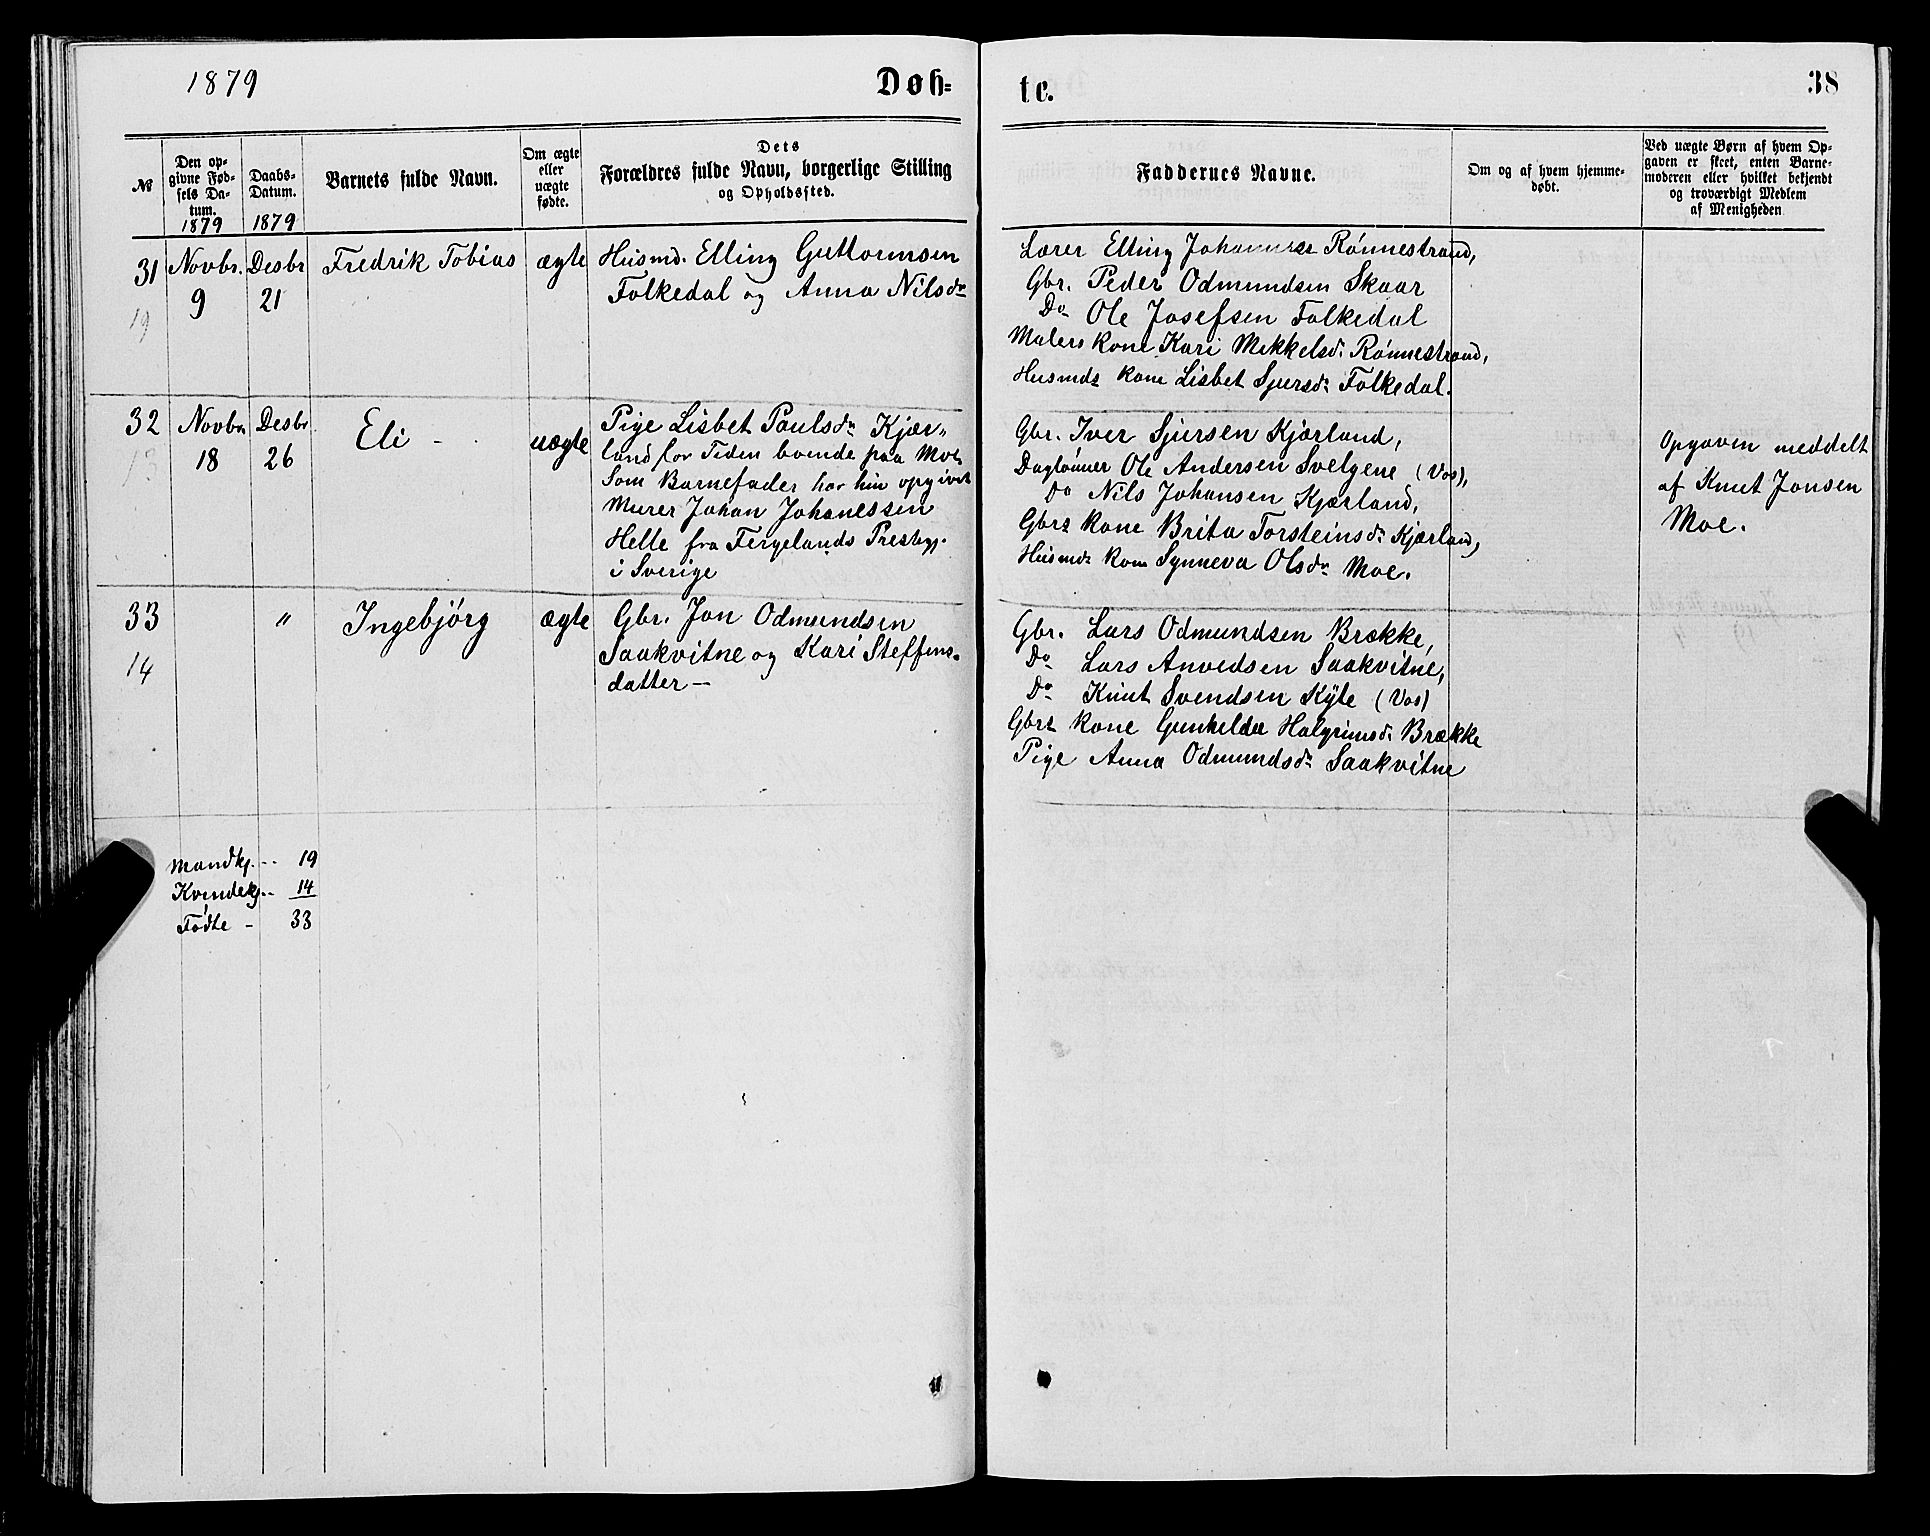 1879
Døb=
te.
38
№
Den op-
givne Fød-
sels Da-
tum.
1879
Daabs-
Datum.
1879
Barnets fulde Navn.
Om ægte
eller
uægte
fødte.
Dets
Forældres fulde Navn, borgerlige Stilling
og Opholdssted.
Faddernes Navne.
Om og af hvem hjemme-
døbt.
Ved uægte Børn af hvem Op-
gaven er skeet, enten Barne-
moderen eller hvilket bekjendt
og troværdigt Medlem
af Menigheden
31
19
Novbr.
9
Desbr
21
Fredrik Tobias
ægte
Husmd. Elling Guttormsen
Folkedal og Anna Nilsdr
Lærer Elling Johannesen Rónnestrand,
Gbr. Peder Odmundsen Skaar
Do Ole Josefsen Folkedal
Malers kone Kari Mikkelsd. Rónnestrand,
Husmds kone Lisbet Sjursdr Folkedal.
32
13
Novbr
18
Desbr
26
Eli -
uægte
Pige Lisbet Paulsdr Kjær„
land for Tiden boende paa Moe
Som Barnefader har hun opgivet
Murer Johan Johanessen
Helle fra Fergelands Prestegj.
i Sverige
Gbr. Iver Sjursen Kjærland,
Daglónner Ole Andersen Svelgene (Vos),
Do Nils Johansen Kjærland,
Gbrs kone Brita Torsteinsdr Kjærland,
Husmds kone Synneva Olsdr Moe.
Opgaven meddelt
af Knut Jonsen
Moe.
33
14
"
Ingebjórg
ægte
Gbr. Jon Odmundsen
Saakvitne og Kari Steffens-
datter —
Gbr. Lars Odmundsen Brække,
Do Lars Anvedsen Saakvitne,
Do Knut Svendsen Kÿte (Vos)
Gbrs kone Gunhilda Halgrimsd. Brække
Pige Anna Odmundsdr Saakvitne
Mandkj. -- 19
Kvindekj. -- 14
Fódte - 33